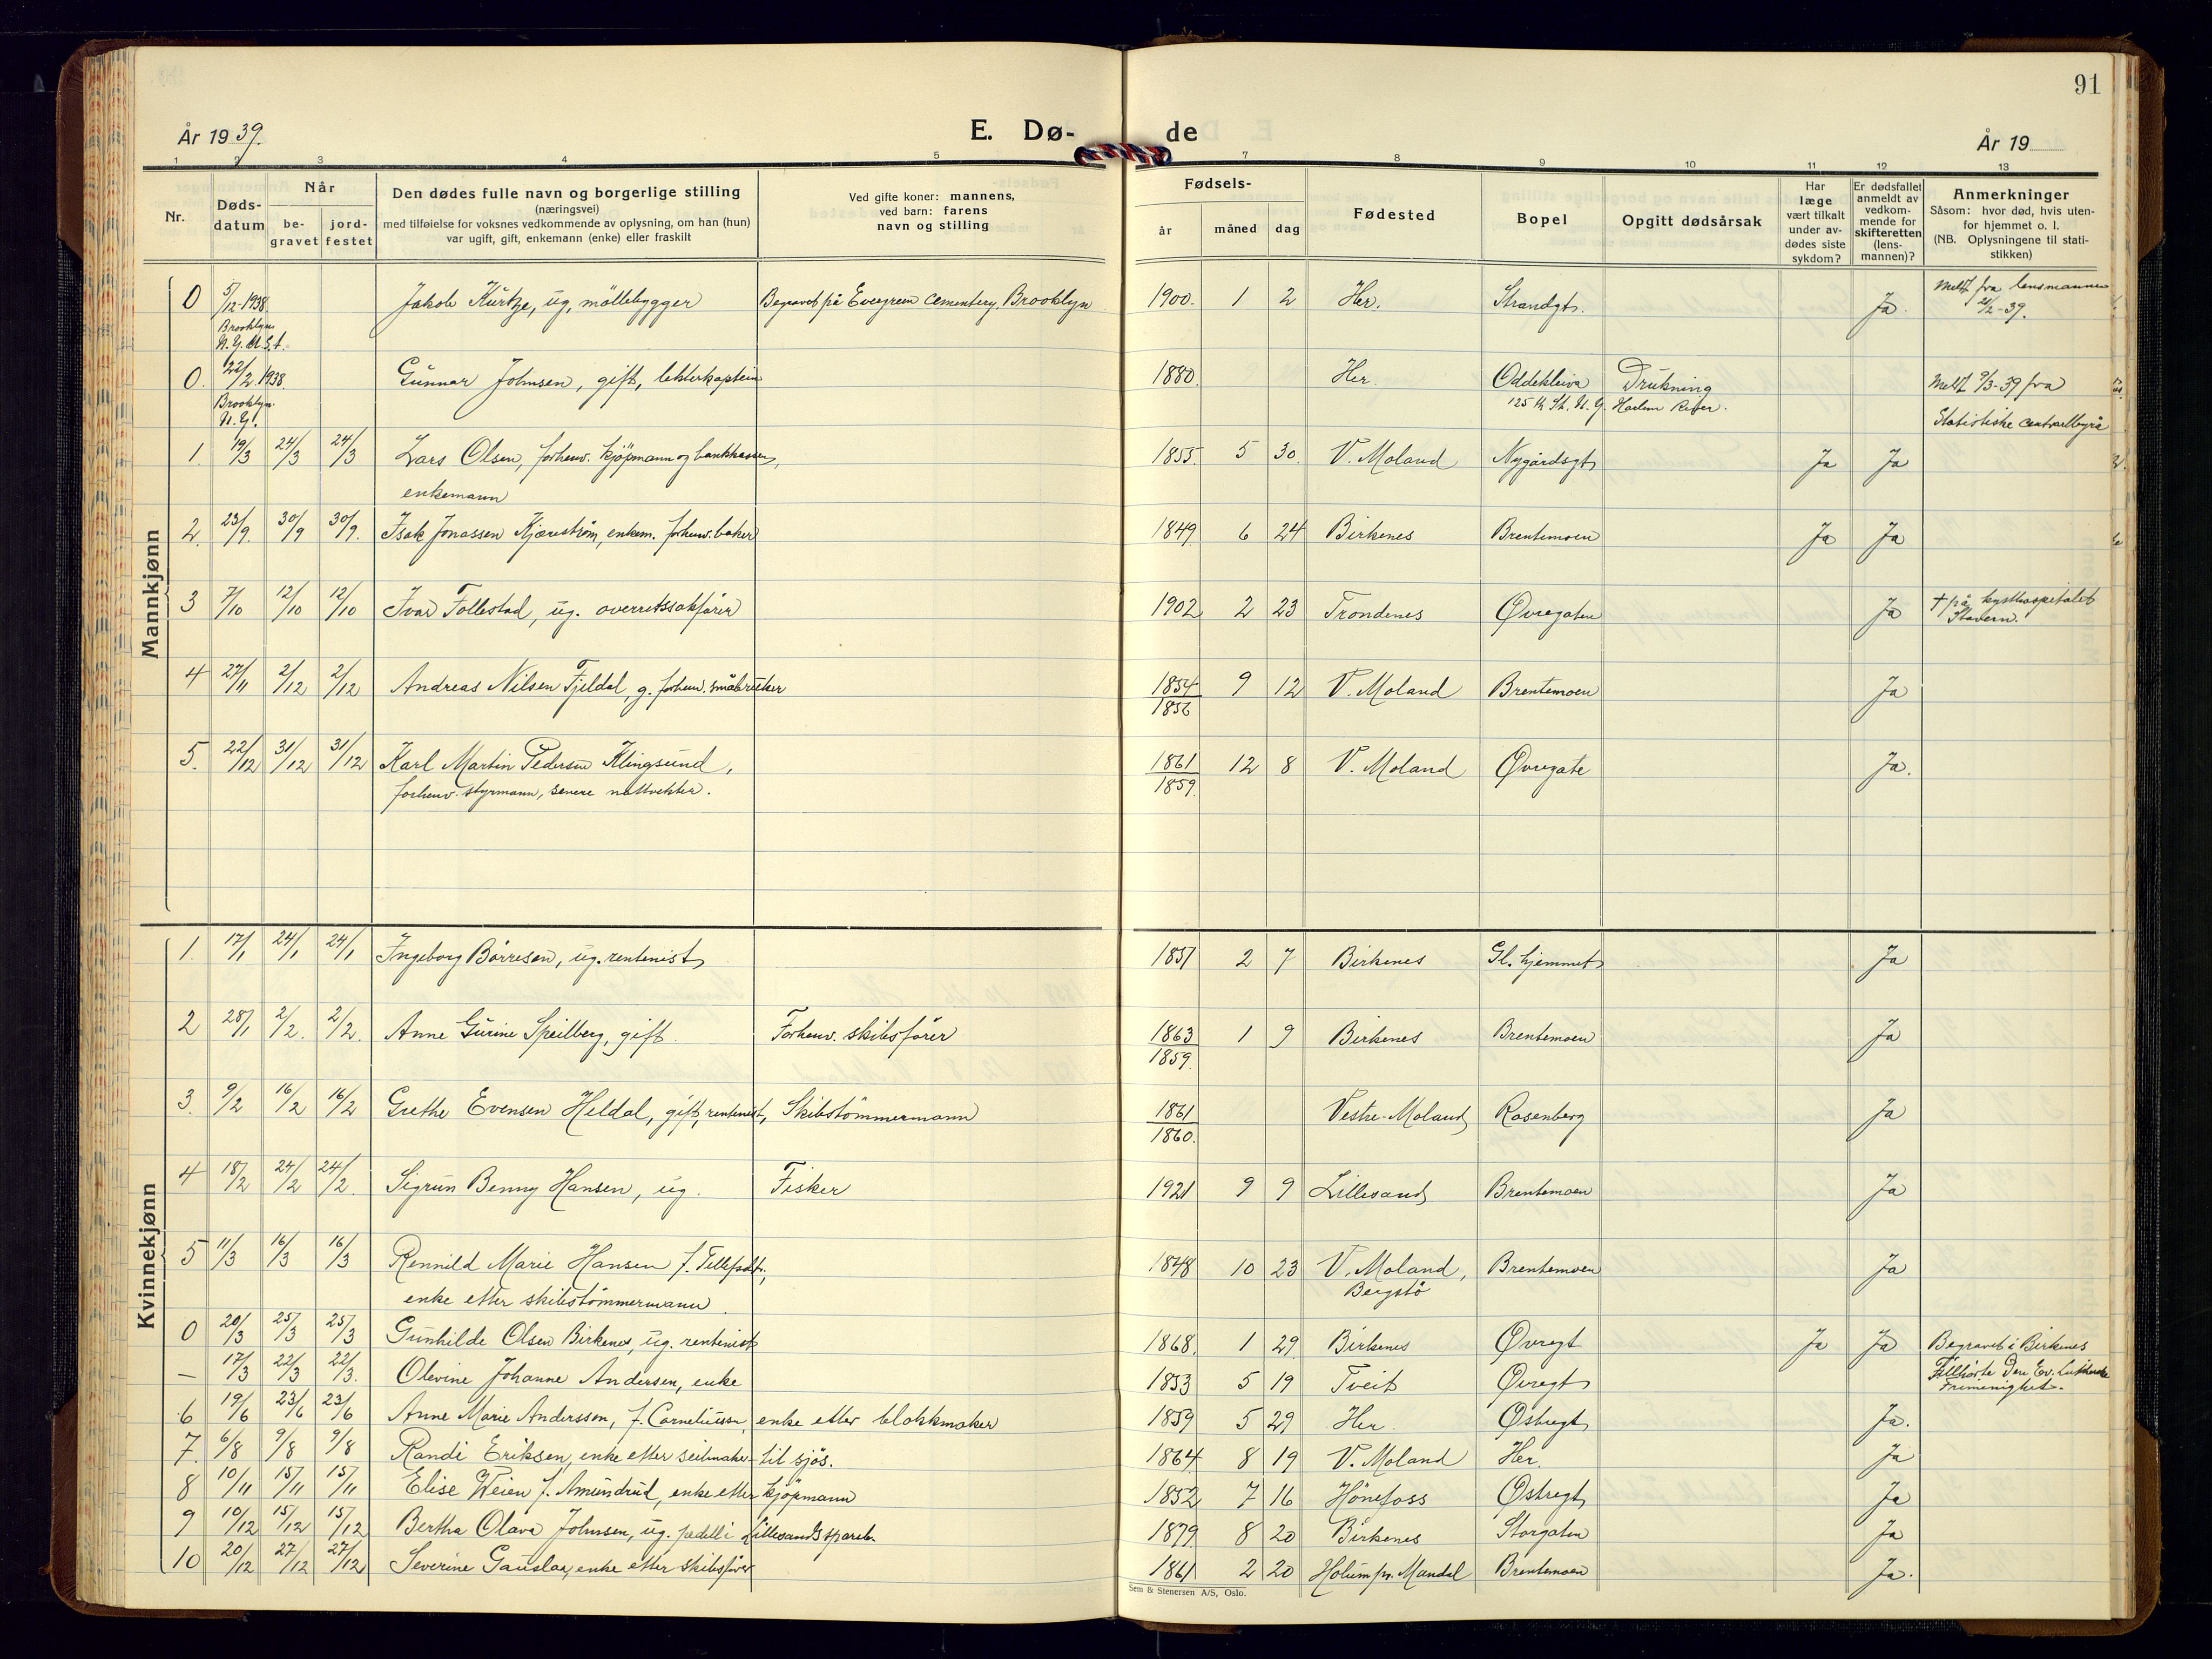 91
År 1939.
E. Dø-
de
År 19
1 2 3 4 5 7 8 9 10 11 12 13
Nr.
Døds-
datum
Når
be-
gravet
jord-
festet
Den dødes fulle navn og borgerlige stilling
(næringsvei)
med tilføielse for voksnes vedkommende av oplysning, om han (hun)
var ugift, gift, enkemann (enke) eller fraskilt
Ved gifte koner: mannens,
ved barn: farens
navn og stilling
Fødsels-
år måned dag
Fødested
Bopel
Opgitt dødsårsak
Har
læge
vært tilkalt
under av-
dødes siste
sykdom?
Er dødsfallet
anmeldt av
vedkom-
mende for
skifteretten
(lens-
mannen)?
Anmerkninger
Såsom: hvor død, hvis uten-
for hjemmet o. l.
(NB. Oplysningene til stati-
stikken)
Mannkjønn
0 5/12-1938. Jakob Kürtze, ug, møllebygger Begravet på Evergreen Cementery, Brooklyn 1900. 1 2 Her. Strandgt. Ja. Meldt fra lensmannen
Brooklyn 21/2-39.
N.Y. U.S.A.
0. 22/2.1938. Gunnar Johnsen, gift, lekterkaptein 1880. Her. Oddekleiva Drukning Meldt 9/3-39 fra
Brooklyn 125th St. N.Y. Harlem River. Statistiske Centralbyrå
N.Y.
1. 19/3 24/3 24/3 Lars Olsen, forhenv. kjøpmann og bankkasser, 1855. 5 30. V. Moland Nygårdsgt Ja Ja
enkemann
2. 23/9. 30/9 30/9. Isak Jonassen Kjærestrøm, enkem. forhenv. baker 1849. 6 24 Birkenes Brentemoen Ja Ja
3 7/10 12/10 12/10 Ivar Follestad, ug. overretssakfører 1902 2 23 Trondenes Øvregaten Ja † på kysthospitalet
Stavern.
4 27/11 2/12 2/12 Andreas Nilsen Fjeldal, g. forhenv. småbruker 1854 9 12 V. Moland Brentemoen Ja
1856
5. 22/12 31/12 31/12 Karl Martin Pedersen Klingsund, 1861 12 8 V. Moland Øvregate Ja.
forhenv. styrmann, senere nattvekter. 1859.
Kvinnekjønn
1. 17/1 24/1 24/1 Ingeborg Børresen, ug. rentenist 1857 2 7 Birkenes Gl. hjemmet Ja
2 28/1 2/2. 2/2. Anne Gurine Speilberg, gift. Forhenv. skibsfører 1863 1 9 Birkenes Brentemoen Ja
1859.
3. 9/2 16/2 16/2 Grethe Evensen Heldal, gift, rentenist, Skibstømmermann 1861 Vestre-Moland Rosenberg Ja
1860.
4 18/2 24/2 24/2. Sigrun Benny Hansen, ug. Fisker 1921 9 9 Lillesand Brentemoen Ja
5 11/3 16/3 16/3 Rennild Marie Hansen f. Tellefsdt., 1848 10 23 V. Moland, Brentemoen Ja
enke etter skibstømmermann. Bergstø
0 20/3 25/3 25/3 Gunhilde Olsen Birkenes, ug. rentenist 1868. 1 29. Birkenes Øvregt Ja Ja Begravet i Birkenes
— 17/3 22/3 22/3. Olevine Johanne Andersen, enke 1853 5 19 Tveit Øvregt Tilhørte Den Ev. Lutherske
Frimenighet.
6 19/6 23/6 23/6 Anne Marie Anderssen, f. Corneliussen, enke etter blokkmaker 1859 5 29 Her. Østregt Ja.
7. 6/8 9/8 9/8 Randi Eriksen, enke etter seilmaker til sjøs. 1864 8 19 V. Moland Her. Ja
8 10/11 15/11 15/11 Elise Weien f. Amundrud, enke etter kjøpmann 1852 7 16 Hønefoss Østregt Ja
9 10/12 15/12 15/12 Bertha Olava Johnsen, ug. pedell i Lillesands spareb. 1879. 8 20 Birkenes Storgaten Ja
10 20/12 27/12 27/12 Severine Gauslaa, enke etter skibsfører 1861 2 20 Holum pr. Mandal Brentemoen Ja.
Sem & Stenersen A/S, Oslo.